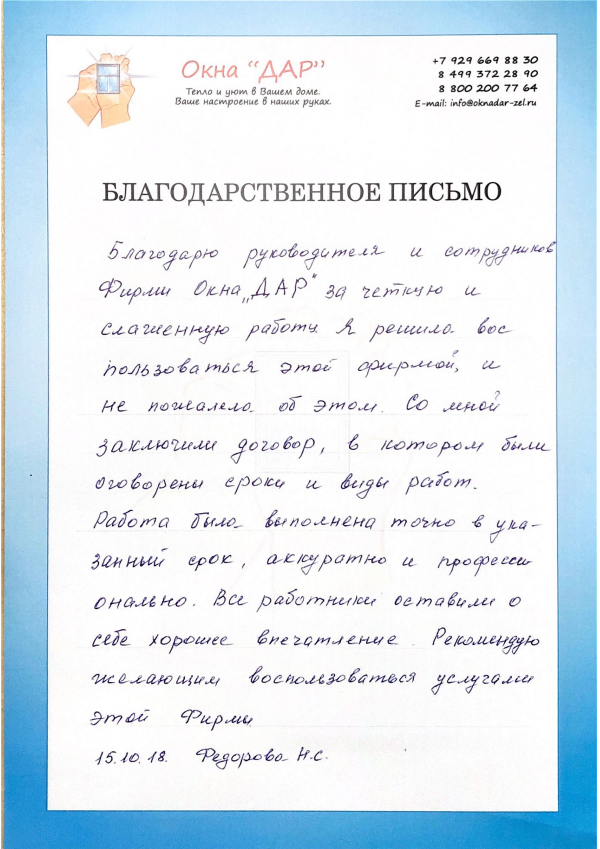 Окна “ДАР”
Тепло и уют в Вашем доме.
Ваше настроение в наших руках.
+7 929 669 88 30
8 499 372 28 90
8 800 200 77 64
E-mail: info@oknadar-zel.ru
БЛАГОДАРСТВЕННОЕ ПИСЬМО
Благодарю руководителя и сотрудников
Фирмы Окна „ДАР“ за четкую и
слаженную работу. Я решила вос
пользоваться этой фирмой, и
не пожалела об этом. Со мной
заключили договор, в котором были
оговорены сроки и виды работ.
Работа была выполнена точно в ука-
занный срок, аккуратно и професси
онально. Все работники оставили о
себе хорошее впечатление. Рекомендую
желающим воспользоваться услугами
этой Фирмы
15.10.18. Федорова Н.С.